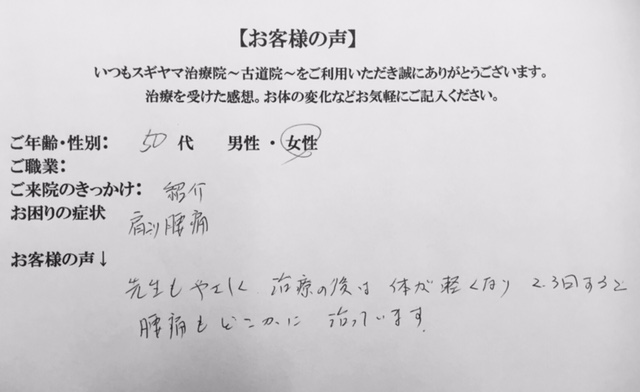 【お客様の声】
いつもスギヤマ治療院～古道院～をご利用いただき誠にありがとうございます。
治療を受けた感想。お体の変化などお気軽にご記入ください。
ご年齢・性別: 50 代 男性・女性
ご職業:
ご来院のきっかけ: 紹介
お困りの症状
肩コリ腰痛
お客様の声↓
先生もやさしく 治療の後は 体が軽くなり 2.3回すると
腰痛もどこかに 治っています